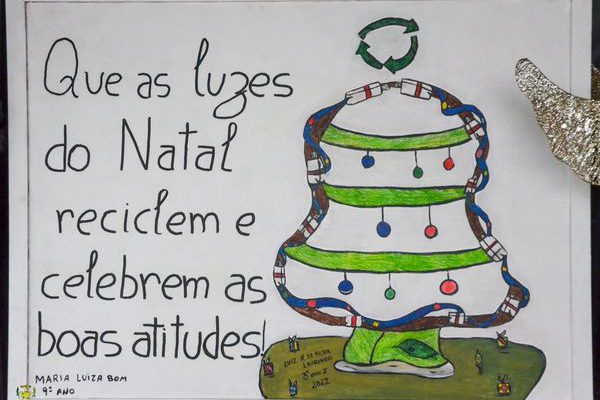 Que as luzes
do Natal
reciclem e
celebrem as
boas atitudes!
MARIA LUIZA BOM
9º ANO
LUIZ H. DA SILVA
LAURINDO
8º ano 2
2022